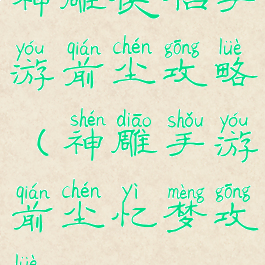 神雕侠侣手
yóu qián chén gōng lüè
游前尘攻略
shén diāo shǒu yóu
（神雕手游
qián chén yì mèng gōng
前尘忆梦攻
lüè